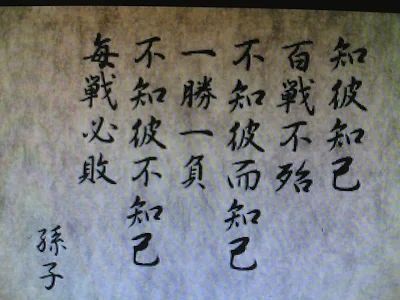 知彼知己
百戦不殆
不知彼而知己
一勝一負
不知彼不知己
毎戦必敗
孫子